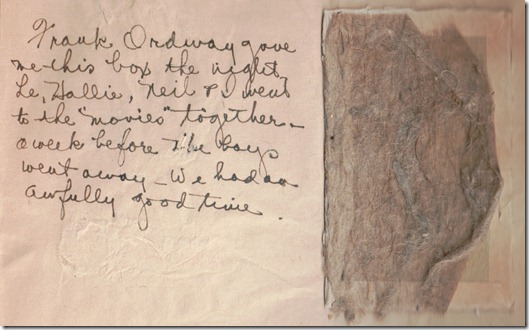 Frank Ordway gave
me this box the night
Le, Hallie, Neil & I went
to the "movies" together –
a week before the boys
went away – We had an
awfully good time.